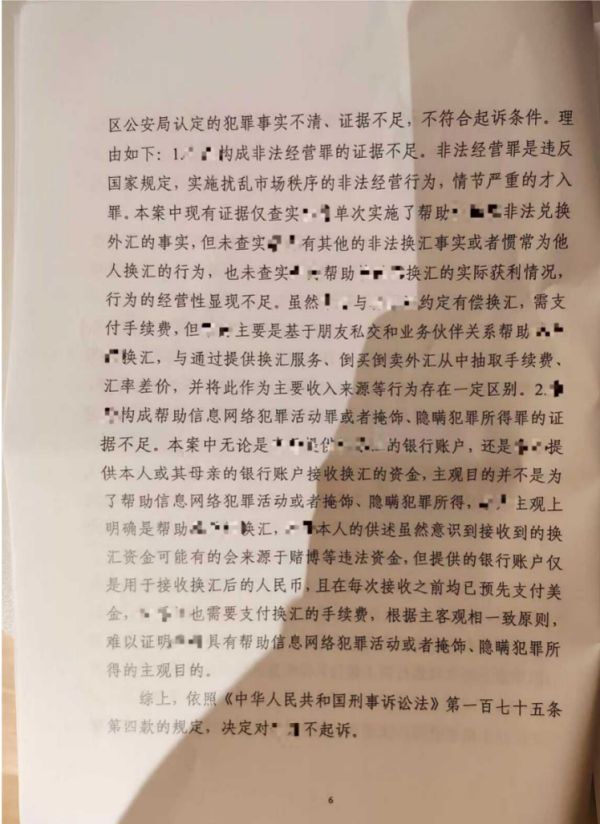 区公安局认定的犯罪事实不清、证据不足，不符合起诉条件。理
由如下：1.构成非法经营罪的证据不足。非法经营罪是违反
国家规定，实施扰乱市场秩序的非法经营行为，情节严重的才入
罪。本案中现有证据仅查实单次实施了帮助非法兑换
外汇的事实，但未查实有其他的非法换汇事实或者惯常为他
人换汇的行为，也未查实帮助换汇的实际获利情况，
行为的经营性显现不足。虽然与约定有偿换汇，需支
付手续费，但主要是基于朋友私交和业务伙伴关系帮助
换汇，与通过提供换汇服务、倒买倒卖外汇从中抽取手续费、
汇率差价，并将此作为主要收入来源等行为存在一定区别。2.
构成帮助信息网络犯罪活动罪或者掩饰、隐瞒犯罪所得罪的证
据不足。本案中无论是提供的银行账户，还是提
供本人或其母亲的银行账户接收换汇的资金，主观目的并不是为
了帮助信息网络犯罪活动或者掩饰、隐瞒犯罪所得，主观上
明确是帮助换汇，本人的供述虽然意识到接收到的换
汇资金可能有的会来源于赌博等违法资金，但提供的银行账户仅
是用于接收换汇后的人民币，且在每次接收之前均已预先支付美
金，也需要支付换汇的手续费，根据主客观相一致原则，
难以证明具有帮助信息网络犯罪活动或者掩饰、隐瞒犯罪所
得的主观目的。
综上，依照《中华人民共和国刑事诉讼法》第一百七十五条
第四款的规定，决定对不起诉。
6